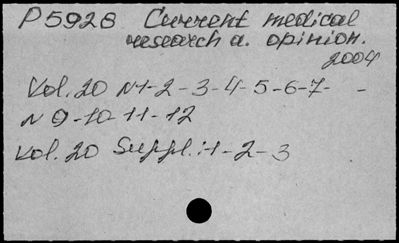 P5928 Current medical
research a. opinion.
2004
Vol. 20 N1-2-3-4-5-6-7- -
N 9-10-11-12
Vol. 20 Suppl.:1-2-3